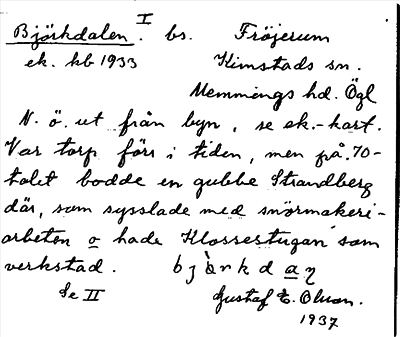 I
Björkdalen. bs. Fröjerum
ek. kb 1933 Kimstads sn.
Memmings hd. Ögl
N. ö. ut från byn, se ek.-kart.
Var torp förr i tiden, men på 70-
talet bodde en gubbe Strandberg
där, som sysslade med snörmakeri-
arbeten o hade Klossestugan som
verkstad. b j ò r k d a η
Se II Gustaf E. Olsson.
1937